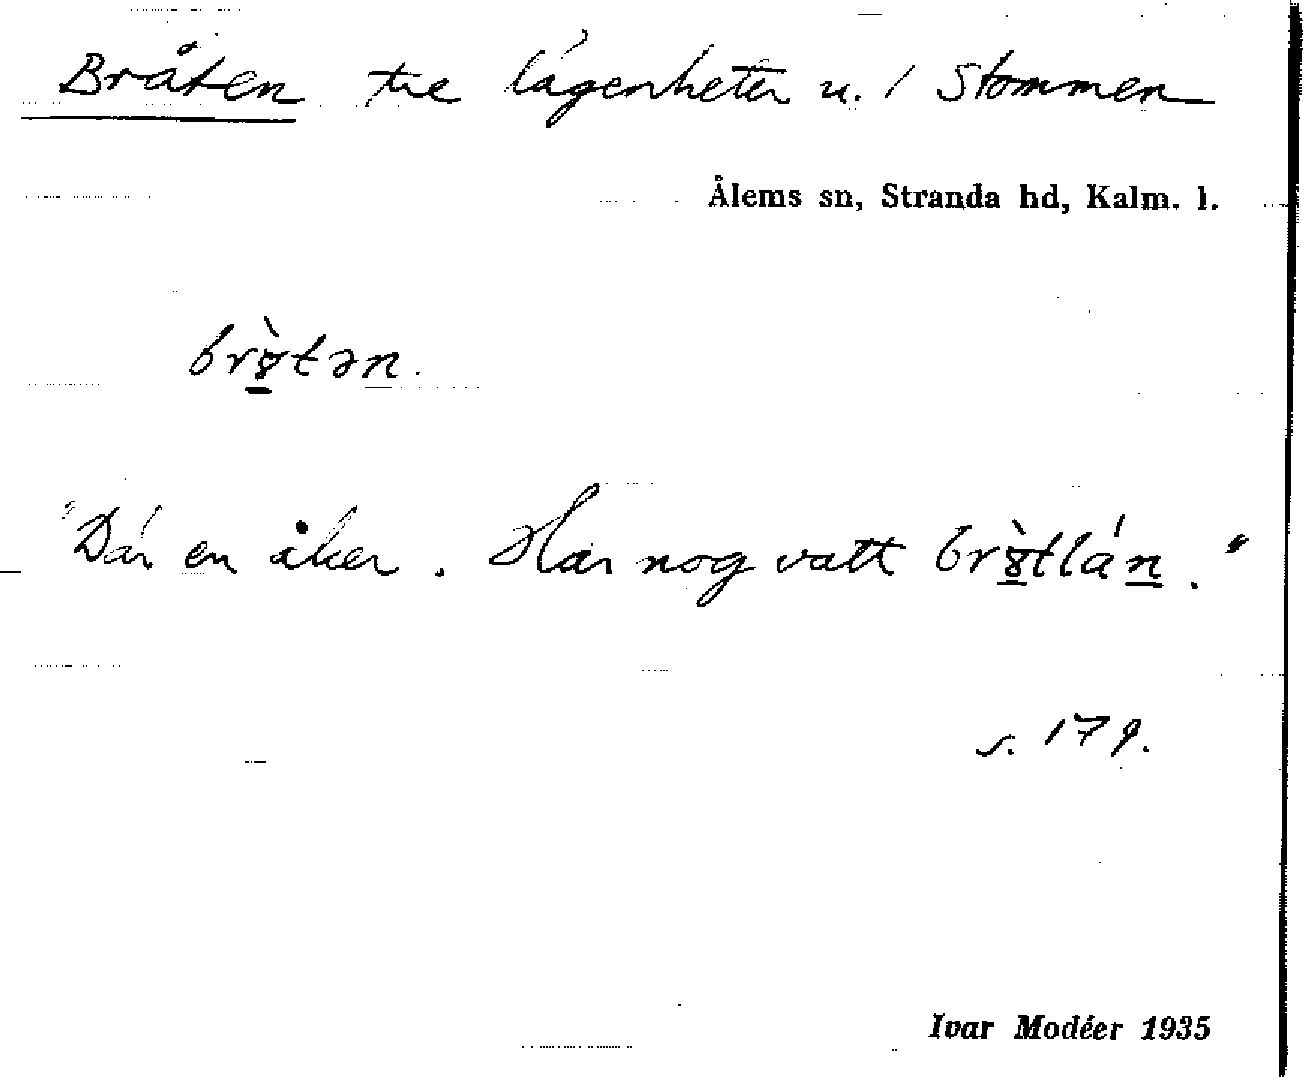 Bråten tre lägenheter u. / Stommen
Ålems sn, Stranda hd, Kalm. l.
brо̀̄tən.
"Där en åker. Har nog vatt brȣ̀tlán."
s. 179.
Ivar Modéer 1935